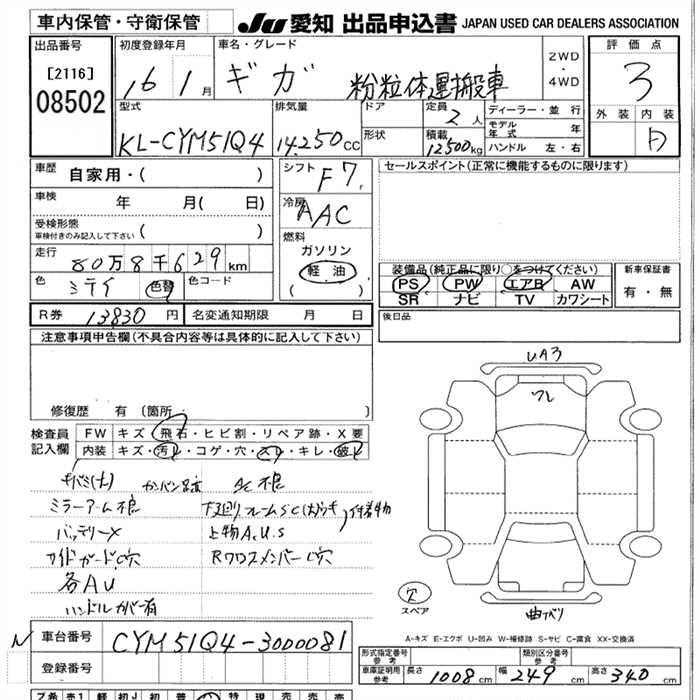 車内保管・守衛保管
JU 愛知 出品申込書 JAPAN USED CAR DEALERS ASSOCIATION
出品番号 初度登録年月 車名・グレード 2WD・4WD 評価点
[2116] 16 1月 ギガ 粉粒体運搬車 3
08502
型式 排気量 ドア 定員 2人 ディーラー・並行 外装 内装
KL-CYM51Q4 14.250cc 形状 積載 12500kg モデル年式 年 D
ハンドル 左・右
車歴 自家用・( ) シフト F7 セールスポイント(正常に機能するものに限ります)
車検 年 月( 日) 冷房 AAC
受検形態
車検付きのみ記入して下さい ( )
燃料
走行 80万8千629km ガソリン
色 色替 色コード 軽油
( )
装備品(純正品に限り○をつけてください) 新車保証書
PS PW エアB AW 有・無
SR ナビ TV カワシート
R券 13830円 名変通知期限 月 日 後日品
注意事項申告欄(不具合内容等は具体的に記入して下さい)
UA3
フレ
修復歴 有(箇所 )
検査員 FW キズ・飛石・ヒビ割・リペア跡・X要
記入欄 内装 キズ・汚れ・コゲ・穴・スレ・キレ・破れ
カンバン跡 AC不良
ミラーアーム不良
バッテリーX 上物A.U.S
サイドガードC穴 RクロスメンバーC穴
各AU
ハンドルカバー有
欠
スペア
A-キズ E-エクボ U-凹み W-補修跡 S-サビ C-腐食 XX-交換済
N 車台番号 CYM51Q4-3000081
登録番号
形式指定番号 参考 類別区分番号 参考
車庫証明用 参考 長さ 1008cm 幅 249cm 高さ 340cm